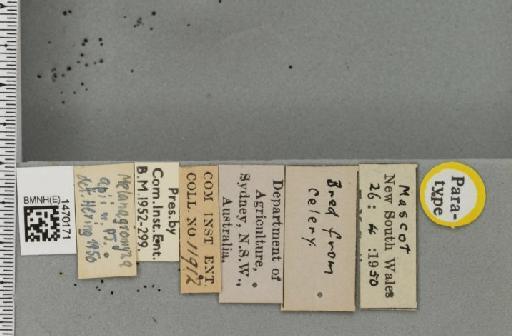 Para-
type
Mascot
New South Wales
26:4:1950
Bred from
celery
Department of
Agriculture,
Sydney, N.S.W.,
Australia.
COM INST ENT
COLL NO 11912
Pres.by
Com.Inst.Ent.
B.M.1952-299.
Melanagromyza
apii n. sp.
det Hering 1950
BMNH(E)
1470171